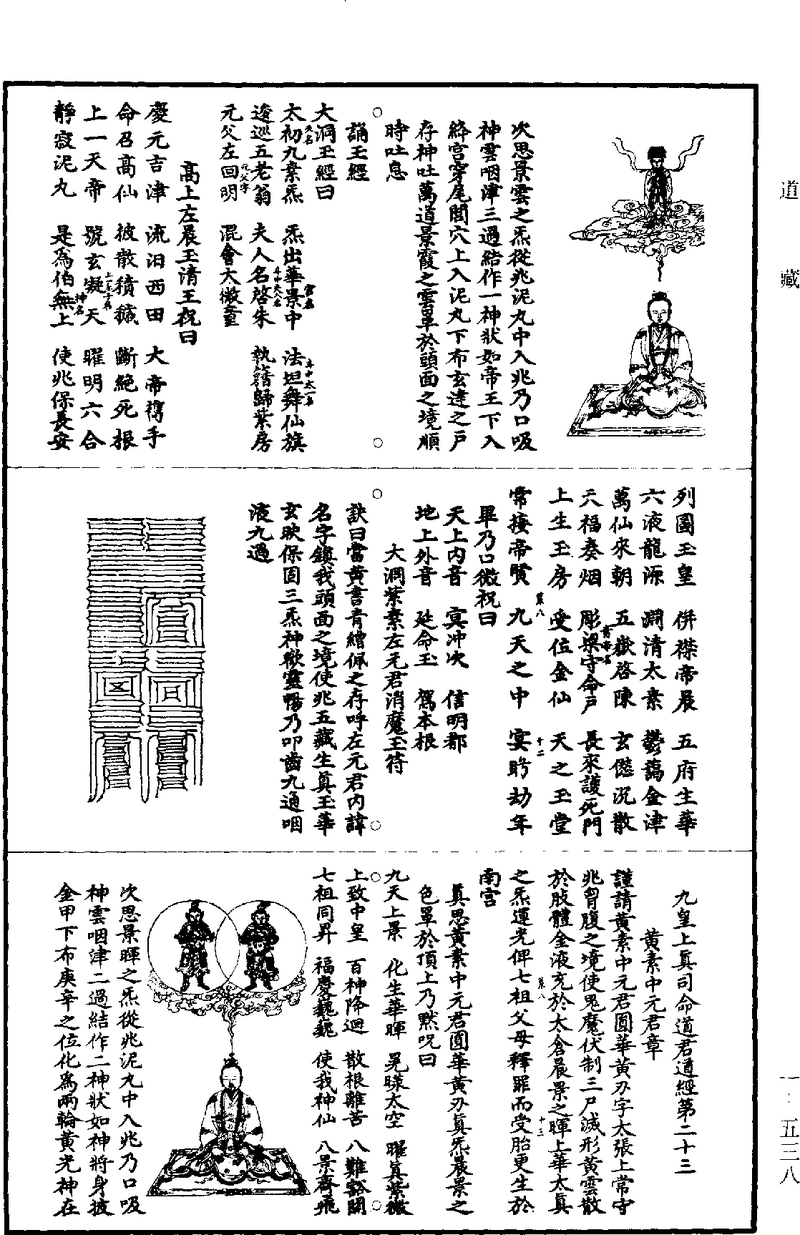 道藏
次思景雲之炁從兆泥丸中入兆乃口吸
神雲咽津三過結作一神狀如帝王下入
絳宮穿尾閭穴上入泥丸下布玄達之戶
存神吐萬道景霞之雲罩於頭面之境順
時吐息
誦玉經
大洞玉經曰
太初九素炁 炁出華景中 法坦舞仙旗
逡巡五老翁 夫人名啓朱 執籍歸紫房
元父左回明 混會大微童
高上左晨玉清王祝曰
慶元吉津 流汨西田 大帝携手
命召高仙 披散積 斷絕死根
上一天帝 號玄凝天 曜明六合
靜寂泥丸 是為伯無上 使兆保長安
列圖玉皇 併襟帝晨 五府生華
六液龍源 澗清太素 鬱藹金津
萬仙來朝 五嶽啓陳 玄 況散
天福奏烟 彫梁守命戶 長來護死門
上生玉房 受位金仙 天之玉堂
常接帝賢 九天之中 宴 劫年
畢乃口微祝曰
天上內音 冥沖次 信明都
地上外音 延命玉 駕本根
大洞紫素左元君消魔玉符
訣曰當黃書青繒佩之存呼左元君內諱
名字鎮我頭面之境使兆五藏生真玉華
玄映保固三炁神歡靈暢乃叩齒九通咽
液九過
九皇上真司命道君道經第二十三
黃素中元君章
謹請黃素中元君圓華黃刃字大張上常守
兆胷腹之境使鬼魔伏制三尸滅形黃雲散
於肢體金液充於太倉晨景之暉上華太真
之炁運光俾七祖父母釋罪而受胎更生於
南宮
真思黃素中元君圓華黃刃真炁晨景之
色罩於頂上乃默呪曰
九天上景 化生華暉 晃曚太空 曜真紫微
上致中皇 百神降迴 散根離苦 八難豁開
七祖同昇 福慶巍巍 使我神仙 八景齊飛
次思景暉之炁從兆泥丸中入兆乃口吸
神雲咽津二過結作二神狀如神將身披
金甲下布庚辛之位化為兩輪黃光神在
一：五三八